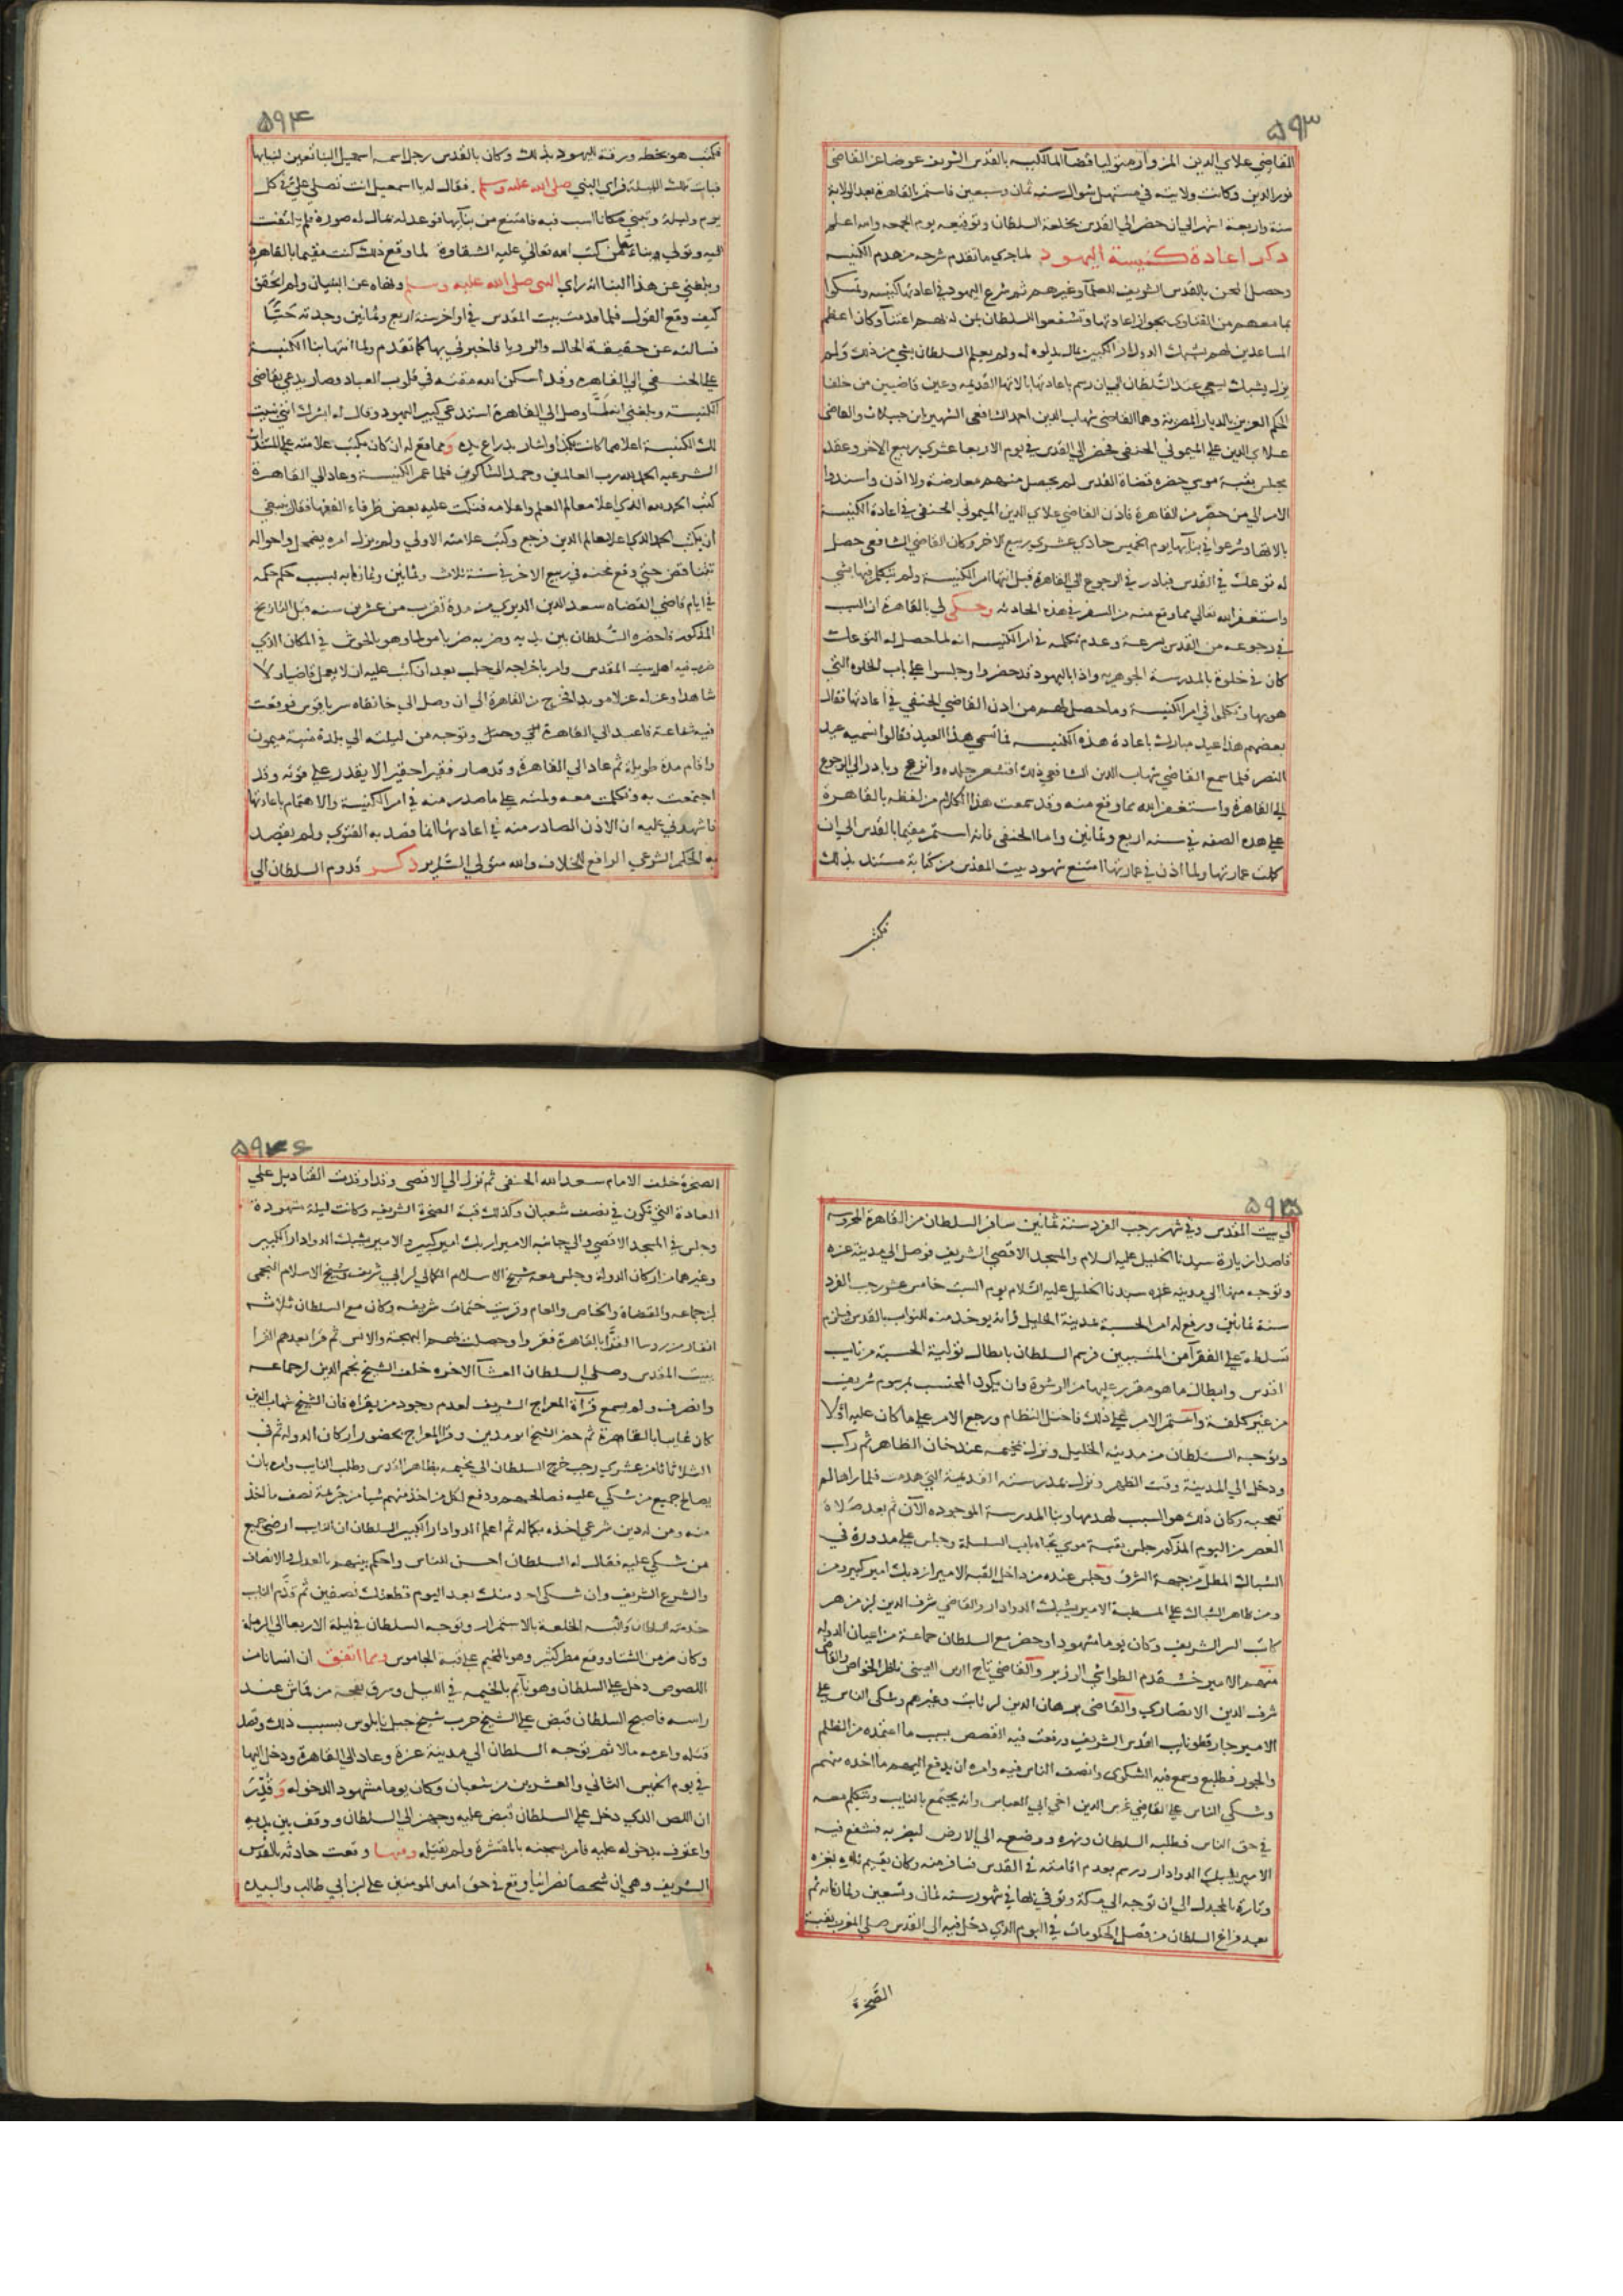 ۵۹۳
القاضي علاي الدين المزوار متوليا قضا المالكيه بالقدس الشريف عوضا عن القاضي
نور الدين وكانت ولايته في مستهل شوال سنه ثمان وسبعين فاستمر بالقاهرة بعد الولاية
سنة واربعة اشهر الي ان حضر الي القدس بخلعة السلطان وتوقيعه يوم الجمعه والله اعلم
ذكر اعادة كنيسة اليهود لما جري ما تقدم شرحه من هدم الكنيسه
وحصل المحن بالقدس الشريف للعلما وغيرهم ثم شرع اليهود في اعادتها كنيسه وتمسكوا
بما معهم من الفتاوى بجواز اعادتها وتشفعوا للسلطان بمن له بهم اعتنا وكان اعظم
المساعدين لهم يشبك الدوادار الكبير بمال بذلوه له ولم يعلم السلطان بشي من ذلك ولم
يزل يشبك يسعي عند السلطان الي ان رسم باعادتها بالاتها القديمه وعين قاضيين من خلفا
الحكم العزيز بالديار المصرية وهما القاضي شهاب الدين احمد الشافعي الشهير بابن جبيلات والقاضي
علاي الدين علي الميموني الحنفي فحضر الي القدس في يوم الاربعا عشري ربيع الاخر وعقد
مجلس بقبة موسي حضره قضاة القدس لم يحصل منهم معارضة ولا اذن واسندوا
الامر الي من حضر من القاهرة فاذن القاضي علاي الدين الميموني الحنفي في اعادة الكنيسة
بالاتها وشرعوا في بنايها يوم الخميس حادي عشري ربيع الاخر وكان القاضي الشافعي حصل
له توعك في القدس فبادر في الرجوع الي القاهرة قبل انتها امر الكنيسة ولم يتكلم فيها بشي
واستغفر الله تعالي مما وقع منه من السفر في هذه الحادثه وحكي لي بالقاهرة ان السبب
في رجوعه من القدس بسرعة وعدم تكلمه في امر الكنيسه انه لما حصل له التوعك
كان في خلوة بالمدرسة الجوهريه واذا باليهود قد حضروا وجلسوا علي باب الخلوة التي
هو بها وتكلموا في امر الكنيسة وما حصل لهم من اذن القاضي الحنفي في اعادتها فقال
بعضهم هذا عيد مبارك باعادة هذه الكنيسه فما نسمي هذا العيد فقالوا نسميه عيد
النصر فلما سمع القاضي شهاب الدين الشافعي ذلك اقشعر جلده وانزعج وبادر الي الرجوع
الي القاهرة واستغفر الله مما وقع منه وقد سمعت هذا الكلام من لفظه بالقاهرة
علي هذه الصفه في سنه اربع وثمانين واما الحنفي فانه استمر مقيما بالقدس الي ان
كملت عمارتها ولما اذن في عمارتها امتنع شهود بيت المقدس من كتابة مستند بذلك
فكتب
۵۹۴
فكتب هو بخطه ورقة لليهود بذلك وكان بالقدس رجل اسمه اسمعيل البنا تعين لبنايها
فبات تلك الليلة فراي النبي صلى الله عليه وسلم فقال له يا اسمعيل انت تصلي علي في كل
يوم وليلة وتبني مكانا اسب فيه فامتنع من بنايها فوعد له بمال له صورة فلم يلتفت
اليه وتولي بناءها من كتب الله تعالي عليه الشقاوة لما وقع ذلك كنت مقيما بالقاهرة
وبلغني عن هذا البنا انه راي النبي صلى الله عليه وسلم ونهاه عن البنيان ولم اتحقق
كيف وقع القول فلما قدمت بيت المقدس في اواخر سنة اربع وثمانين وجدته حيا
فسالته عن حقيقة الحال والرويا فاخبرني بها كما تقدم ولما انتها بنا الكنيسة
علي الحنفي الي القاهرة وقد اسكن الله مقته في قلوب العباد وصار يدعي بقاضي
الكنيسة وبلغني انه لما وصل الي القاهرة استدعي كبير اليهود وقال له ابشرك انني بنيت
لك الكنيسة اعلا مما كانت هكذا واشار بذراع يده ومما وقع له ان كان يكتب علامته علي المستندات
الشرعيه الحمد لله رب العالمين وحمد الشاكرين فلما عمر الكنيسة وعاد الي القاهرة
كتب الحمد لله الذي اعلا معالم العلم واعلامه فنكت عليه بعض ظرفاء الفقها فقال ينبغي
ان يكتب الحمد الذي اعلا معالم الدين فرجع وكتب علامته الاولي ولم يزل امره يضمحل واحواله
تتناقص حتي وقع محنه في ربيع الاخر في سنة ثلاث وثمانين وثمانمايه بسبب حكم حكمه
في ايام قاضي القضاه سعد الدين الديري من مدة تقرب من عشرين سنه قبل التاريخ
المذكور فاحضره السلطان بين يديه وضربه ضربا مولما وهو بالحوش في المكان الذي
ضرب فيه اهل بيت المقدس وامر باخراجه الي حلب بعد ان كتب عليه ان لا يعمل قاضيا ولا
شاهدا وعزله عزلا موبدا فخرج من القاهرة الي ان وصل الي خانقاه سرياقوس فوقعت
فيه شفاعة فاعيد الي القاهرة وتوجه من ليلته الي بلدة منية ميمون
واقام مدة طويلة ثم عاد الي القاهرة وقد صار فقيرا حقيرا لا يقدر علي قوته وقد
اجتمعت به وتكلمت معه ولمته علي ما صدر منه في امر الكنيسة والاهتمام باعادتها
فاشهدني عليه ان الاذن الصادر منه في اعادتها انما قصد به الفتوي ولم يقصد
به الحكم الشرعي الرافع للخلاف والله متولي السراير ذكر قدوم السلطان الي
۵۹۵
الي بيت المقدس وفي شهر رجب الفرد سنة ثمانين سافر السلطان من القاهرة المحروسه
قاصدا زيارة سيدنا الخليل عليه السلام والمسجد الاقصي الشريف فوصل الي مدينة غزه
وتوجه منها الي مدينه سيدنا الخليل عليه السلام يوم السبت خامس عشر رجب الفرد
سنة ثمانين ورفع له امر الحسبة بمدينة الخليل وانه يوخذ منه للنواب بالقدس فيلزم
تسلطه علي الفقرا من المتسببين فرسم السلطان بابطال تولية الحسبة من نايب
القدس وابطال ما هو مقرر عليها من الرشوة وان يكون المحتسب بمرسوم شريف
من غير كلفة واستمر الامر علي ذلك فاختل النظام ورجع الامر علي ما كان عليه اولا
وتوجه السلطان من مدينه الخليل ونزل بمخيمه عند خان الظاهر ثم ركب
ودخل الي المدينة وقت الظهر ونزل بمدرسته القديمة التي هدمت فلما راها لم
تعجبه وكان ذلك هو السبب لهدمها وبنا المدرسة الموجوده الآن ثم بعد صلاة
العصر من اليوم المذكور جلس بقبة موسي تجاه باب السلسلة وجلس علي مدورة في
الشباك المطل من جهة الشرق وجلس عنده من داخل القبه الامير ازدبك امير كبير ومن
ومن ظاهر الشباك علي المسطبة الامير يشبك الدوادار والقاضي شرف الدين بن مزهر
كاتب السر الشريف وكان يوما مشهودا وحضر مع السلطان جماعة من اعيان الدوله
منهم الامير خشقدم الطواشي الوزير والقاضي تاج الدين المقسي ناظر الخواص والقاضي
شرف الدين الانصاري والقاضي برهان الدين بن ثابت وغيرهم وشكي الناس علي
الامير جار قطلو نايب القدس الشريف ورفعت فيه القصص بسبب ما اعتمده من الظلم
والجور فطلبه وسمع فيه الشكوي وانصف الناس فيه وامره ان يدفع اليهم ما اخذه منهم
وشكي الناس علي القاضي غرس الدين اخي ابي العباس وانه يجتمع بالنايب ويتكلم معه
في حق الناس فطلبه السلطان ونهره ووضعه الي الارض ليضربه فشفع فيه
الامير يشبك الدوادار ورسم بعدم اقامته في القدس فسافر منه وكان يقيم تارة بغزه
وتارة بالمجدل الي ان توجه الي مكة وتوفي بها في شهور سنه ثمان وتسعين وثمانمايه ثم
بعد فراغ السلطان من فصل الحكومات في اليوم الذي دخل فيه الي القدس صلي المغرب بقبة
الصخرة
۵۹۶
الصخرة خلف الامام سعد الله الحنفي ثم نزل الي الاقصي وقد اوقدت القناديل علي
العادة التي تكون في نصف شعبان وكذلك قبة الصخرة الشريفه وكانت ليلة مشهودة
وجلس في المسجد الاقصي والي جانبه الامير ازبك امير كبير والامير يشبك الدوادار الكبير
وغيرهما من اركان الدوله وجلس معه شيخ الاسلام الكمالي بن ابي شريف وشيخ الاسلام النجمي
بن جماعه والقضاة والخاص والعام وقريت ختمات شريفه وكان مع السلطان ثلاثه
انفار من روسا القرا بالقاهرة فقروا وحصلت لهم البهجة والانس ثم قرا بعدهم القرا
ببيت المقدس وصلي السلطان العشآ الاخره خلف الشيخ نجم الدين بن جماعه
وانصرف ولم يسمع قرآة المعراج الشريف لعدم وجود من يقراه فان الشيخ شهاب الدين
كان غايبا بالقاهرة ثم حضر الشيخ ابو مدين وقرا المعراج بحضور اركان الدوله ثم في
الثلاثا ثامن عشري رجب خرج السلطان الي مخيمه بظاهر القدس وطلب النايب وامره بان
يصالح جميع من شكي عليه فصالحهم ودفع لكل من اخذ منهم شيا من جريمة نصف ما اخذ
منه ومن له دين شرعي اخذه بكماله ثم اعلم الدوادار الكبير السلطان ان النايب ارضي جميع
من شكي عليه فقال له السلطان احسن للناس واحكم بينهم بالعدل والانصاف
والشرع الشريف وان شكي احد منك بعد اليوم قطعتك نصفين ثم قدم النايب
خدمته للسلطان والبسه الخلعة بالاستمرار وتوجه السلطان في ليلة الاربعا الي الرملة
وكان زمن الشتا ووقع مطر كثير وهو بالمخيم علي قبة الجاموس ومما اتفق ان انسانا من
اللصوص دخل علي السلطان وهو نايم بالخيمه في الليل وسرق بقجة من قماش عند
راسه فاصبح السلطان قبض علي الشيخ حرب شيخ جبل نابلوس بسبب ذلك وقصد
قتله واغرمه مالا ثم توجه السلطان الي مدينة غزة وعاد الي القاهرة ودخل اليها
في يوم الخميس الثاني والعشرين من شعبان وكان يوما مشهودا لدخوله وقدر
ان اللص الذي دخل علي السلطان قبض عليه وجهز الي السلطان ووقف بين يديه
واعترف بدخوله عليه فامر بسجنه بالمقشرة ولم يقتله ومنها وقعت حادثه بالقدس
الشريف وهي ان شخصا نصرانيا وقع في حق امير المومنين علي بن ابي طالب والسيده